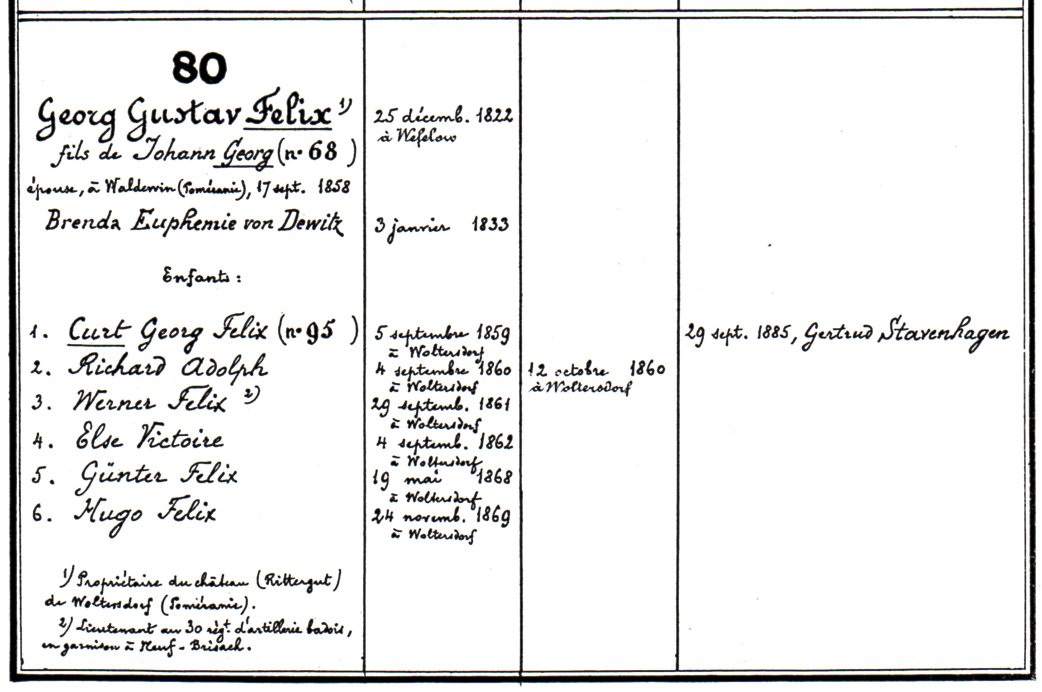 80
Georg Gustav Felix 1)
25 décemb. 1822
à Wefelow
fils de Johann Georg (n° 68 )
épouse, à Waldewin (Poméranie), 17 sept. 1858
Brenda Euphemie von Dewitz
3 janvier 1833
Enfants :
1. Curt Georg Felix (n° 95 )
5 septembre 1859
à Woltersdorf
29 sept. 1885, Gertrud Stavenhagen
2. Richard Adolph
4 septembre 1860
à Woltersdorf
12 octobre 1860
à Woltersdorf
3. Werner Felix 2)
29 septemb. 1861
à Woltersdorf
4. Else Victoire
4 septemb. 1862
à Woltersdorf
5. Günter Felix
19 mai 1868
à Woltersdorf
6. Hugo Felix
24 novemb. 1869
à Woltersdorf
1) Propriétaire du château (Rittergut)
de Woltersdorf (Poméranie).
2) Lieutenant au 30 régt. d'artillerie badois,
en garnison à Neuf-Brisach.